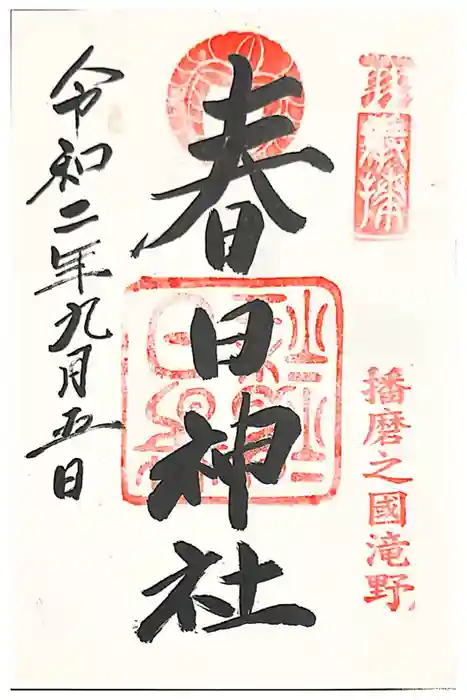 播磨之國滝野
春日神社
令和二年九月五日